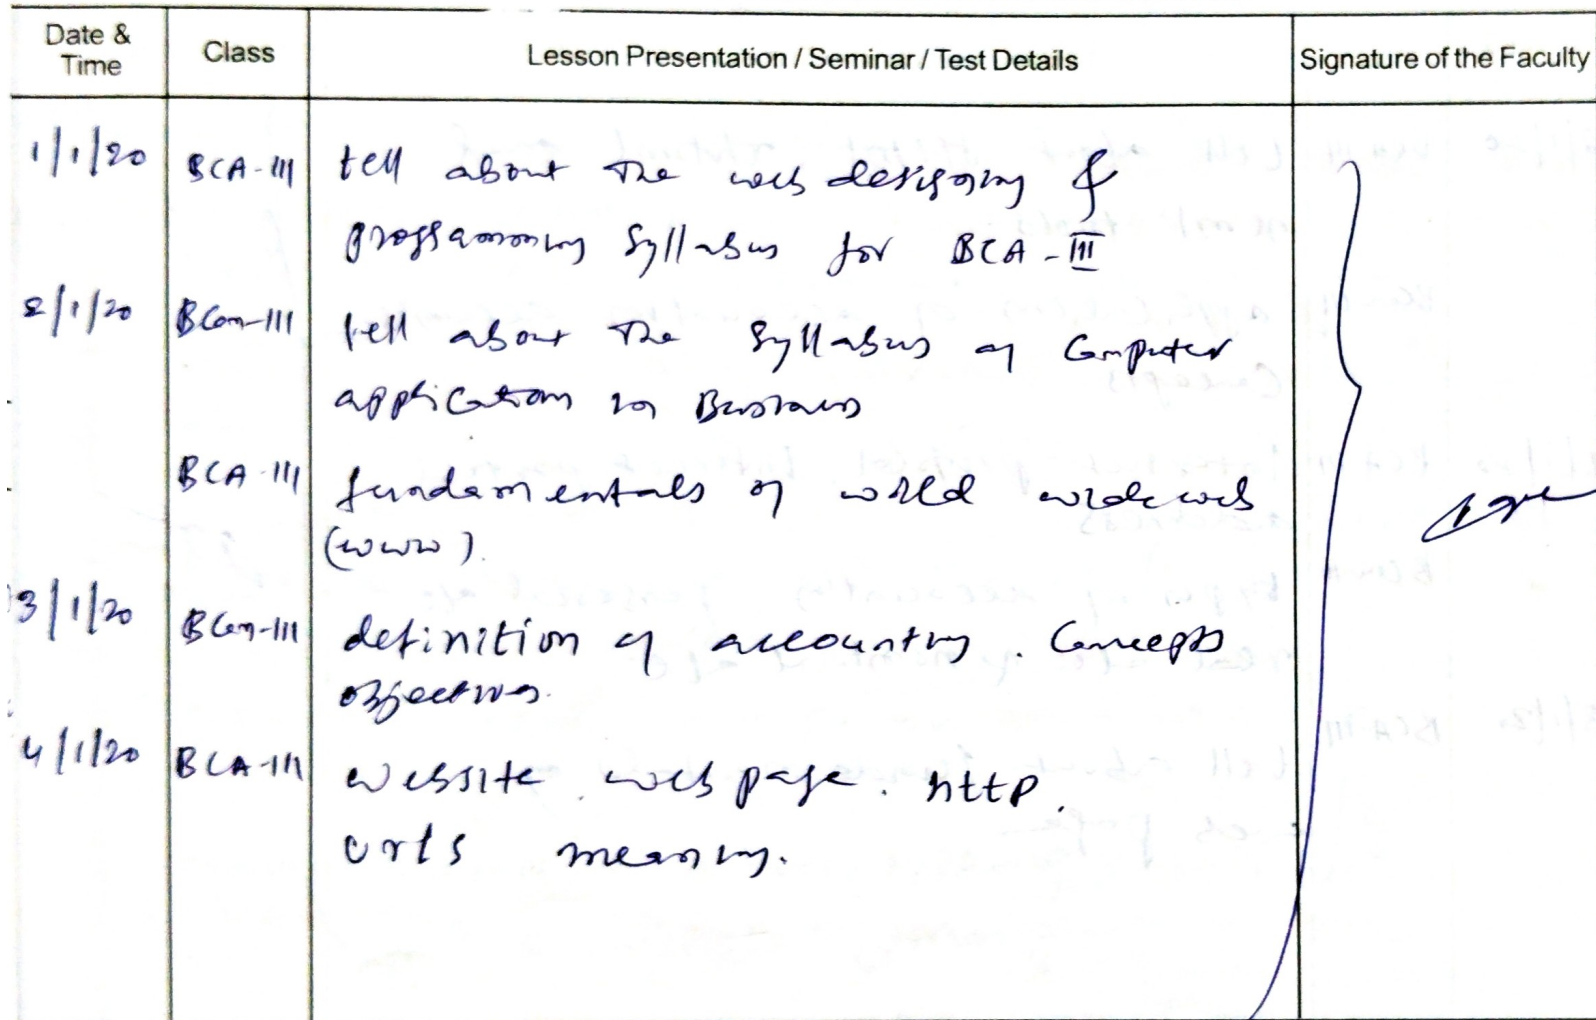 Date & Time Class Lesson Presentation / Seminar / Test Details Signature of the Faculty
1/1/20 BCA-III tell about the web designing &
programming Syllabus for BCA-III
2/1/20 BCom-III tell about the Syllabus of Computer
application in Business
BCA-III fundamentals of world wide web
(www).
3/1/20 BCom-III definition of accounting. Concepts
objectives.
4/1/20 BCA-III website. web page. http.
urls meaning.